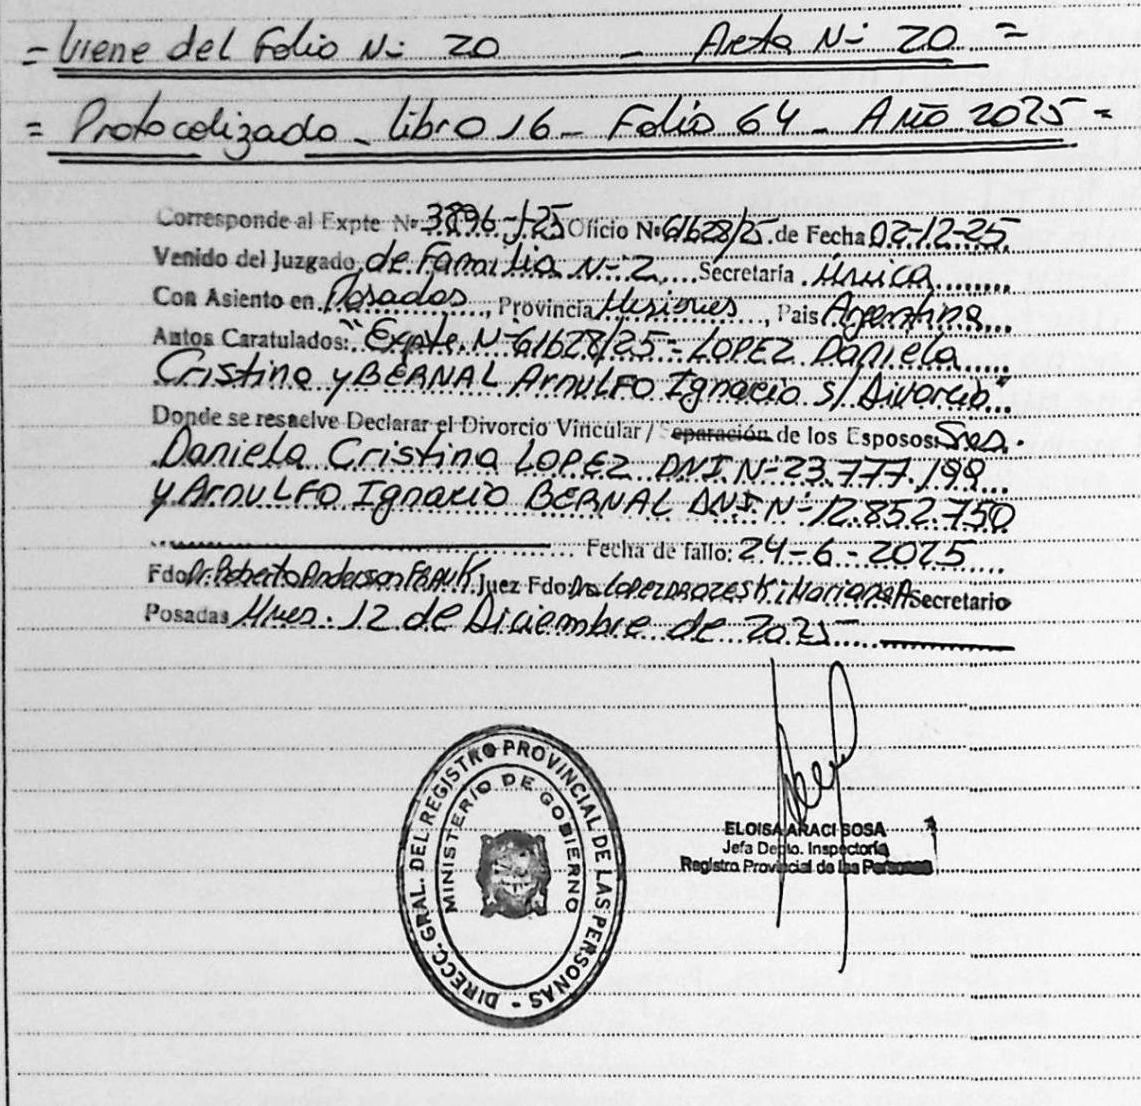 = Viene del Folio Nº 20 - Acta Nº 20 =
= Protocolizado - libro 16 - Folio 64 - Año 2025 =
Corresponde al Expte Nº 3896-J-25 Oficio Nº 61628/25 de Fecha 02-12-25
Venido del Juzgado de Familia Nº 2 Secretaría Única
Con Asiento en Posadas, Provincia Misiones, Pais Argentina
Autos Caratulados: "Expte. Nº 61628/25 - LOPEZ Daniela
Cristina y BERNAL Arnulfo Ignacio s/ Divorcio"
Donde se resuelve Declarar el Divorcio Vincular / Separación de los Esposos: Sres.
Daniela Cristina LOPEZ DNI Nº 23.777.199
y Arnulfo Ignacio BERNAL DNI Nº 12.852.750
Fecha de fallo: 24-6-2025
Fdo Dr. Roberto Anderson FRANK Juez Fdo Dra. LOPEZ DROZESKi Mariana A Secretario
Posadas Mnes. 12 de Diciembre de 2025
DIRECC. GRAL. DEL REGISTRO PROVINCIAL DE LAS PERSONAS -
MINISTERIO DE GOBIERNO
ELOISA ARACI SOSA
Jefa Depto. Inspectoría
Registro Provincial de las Personas